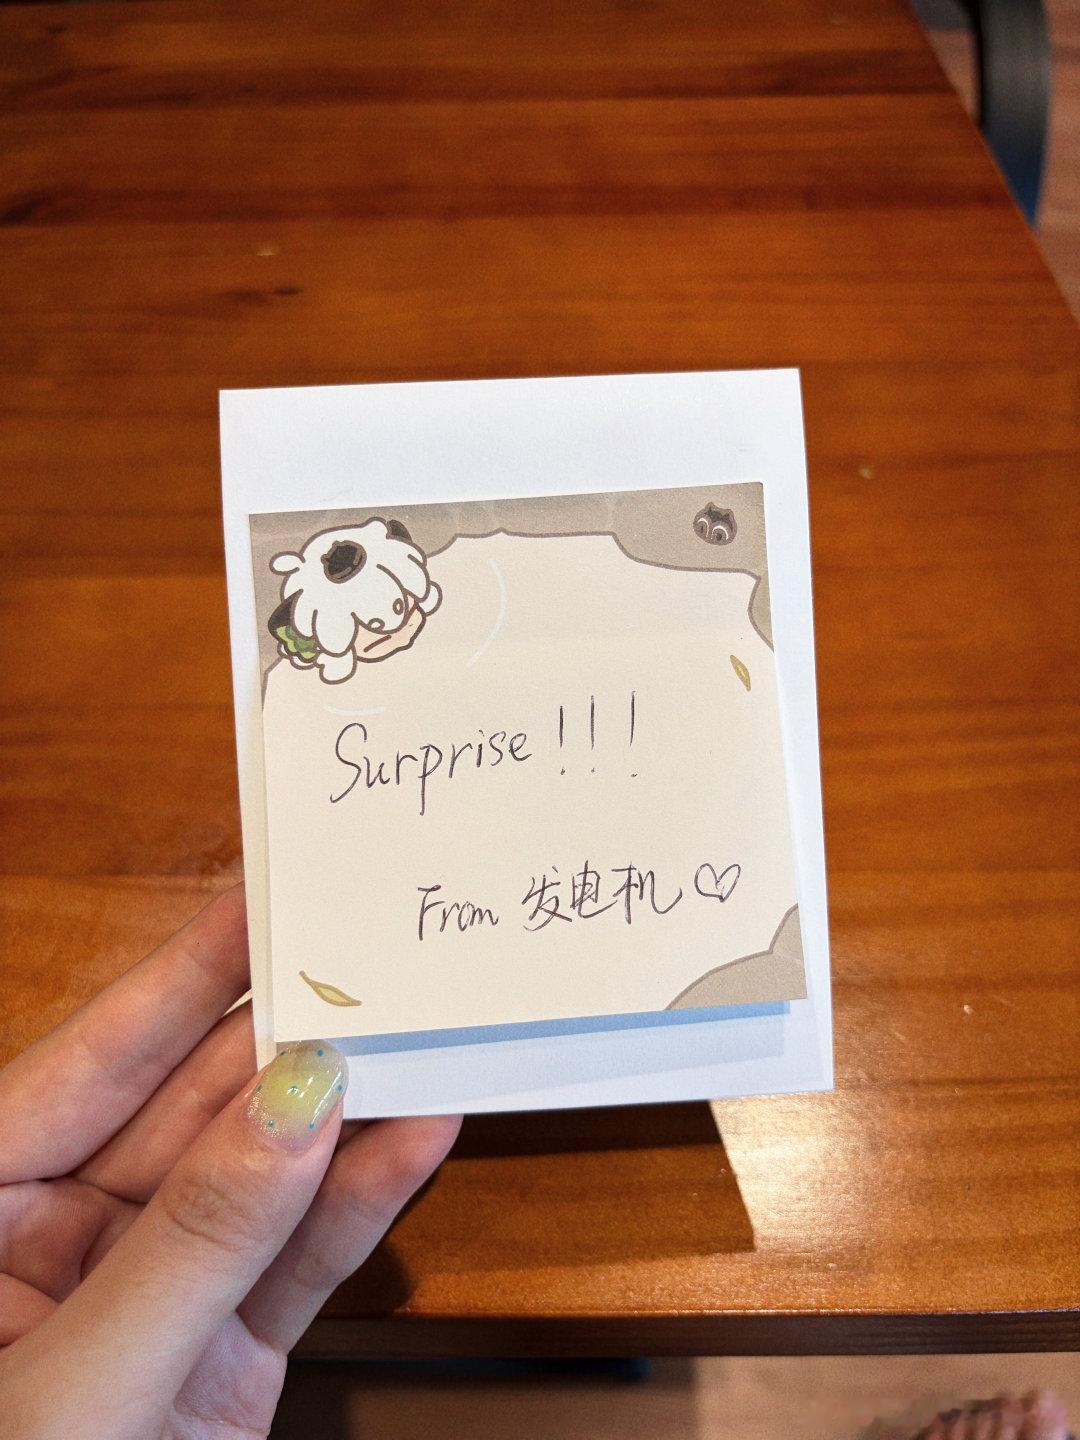 Surprise!!!
From 发电机♡